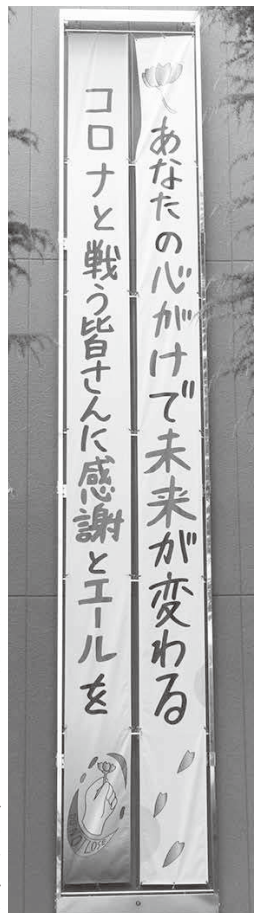 あなたの心がけで未来が変わる
コロナと戦う皆さんに感謝とエールを